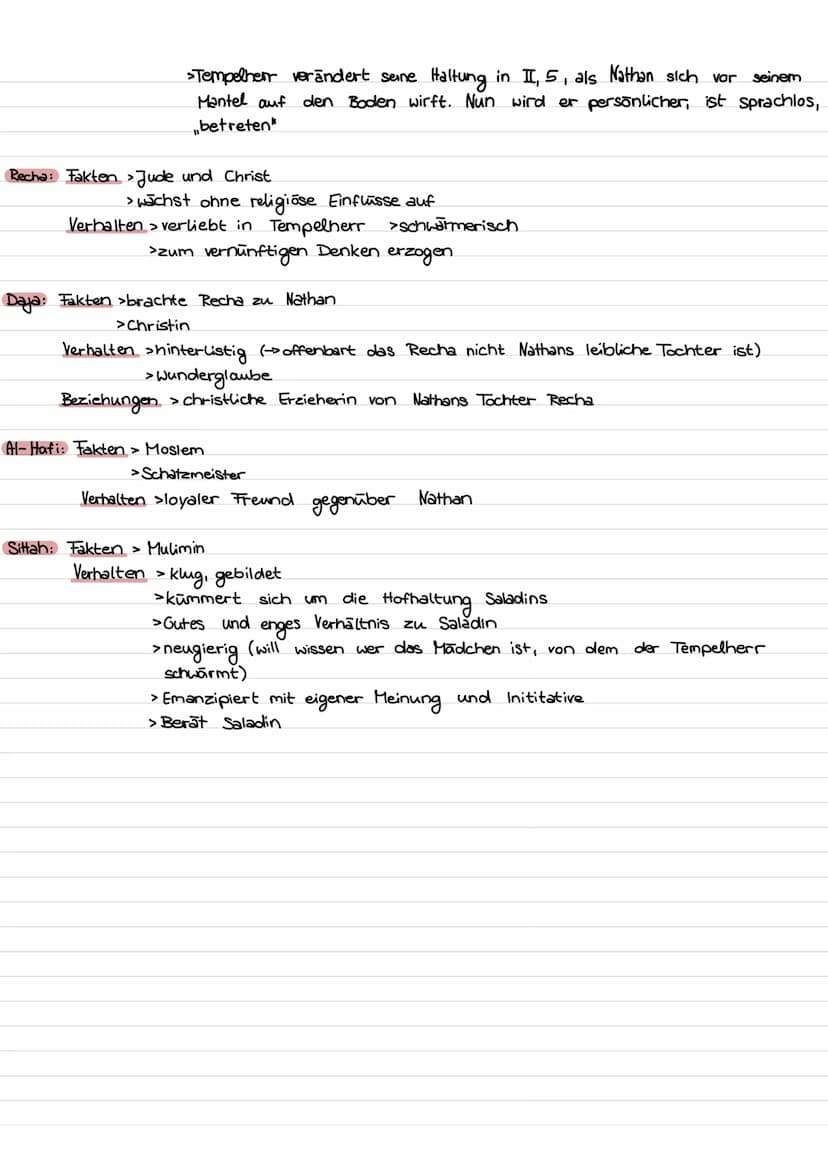 >Tempelherr verändert seine Haltung in II, 5, als Nathan sich vor seinem
Mantel auf den Boden wirft. Nun wird er persönlicher, ist sprachlos,
„betreten"
Recha: Fakten >Jude und Christ
>wächst ohne religiöse Einflüsse auf
Verhalten >verliebt in Tempelherr >schwärmerisch
>zum vernünftigen Denken erzogen
Daja: Fakten >brachte Recha zu Nathan
>Christin
Verhalten >hinterlistig (→offenbart das Recha nicht Nathans leibliche Tochter ist)
>Wunderglaube
Beziehungen >christliche Erzieherin von Nathans Tochter Recha
Al-Hafi: Fakten > Moslem
>Schatzmeister
Verhalten >loyaler Freund gegenüber Nathan
Sittah: Fakten > Mulimin
Verhalten > klug, gebildet
>kümmert sich um die Hofhaltung Saladins
>Gutes und enges Verhältnis zu Saladin
>neugierig (will wissen wer das Mädchen ist, von dem der Tempelherr
schwärmt)
>Emanzipiert mit eigener Meinung und Inititative
>Berät Saladin